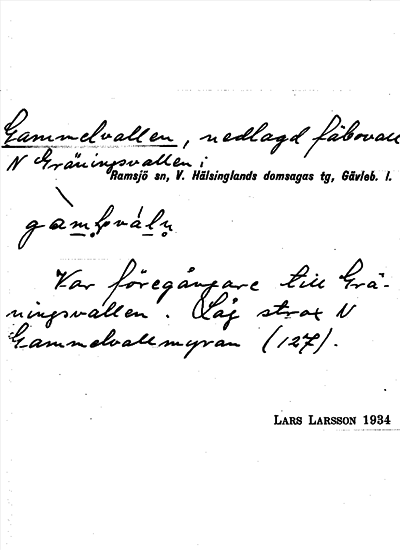 Gammelvallen, nedlagd fäbovall
N Gräningsvallen i
Ramsjö sn, V. Hälsinglands domsagas tg, Gävleb. l.
Var föregångare till Grä-
ningsvallen. Låg strax N
Gammelvallmyran (127).
LARS LARSSON 1934